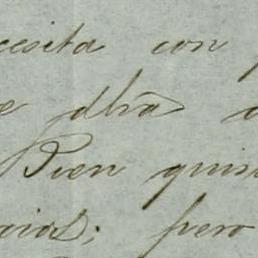 cesita con
e dha
Bien quis
cias; pero